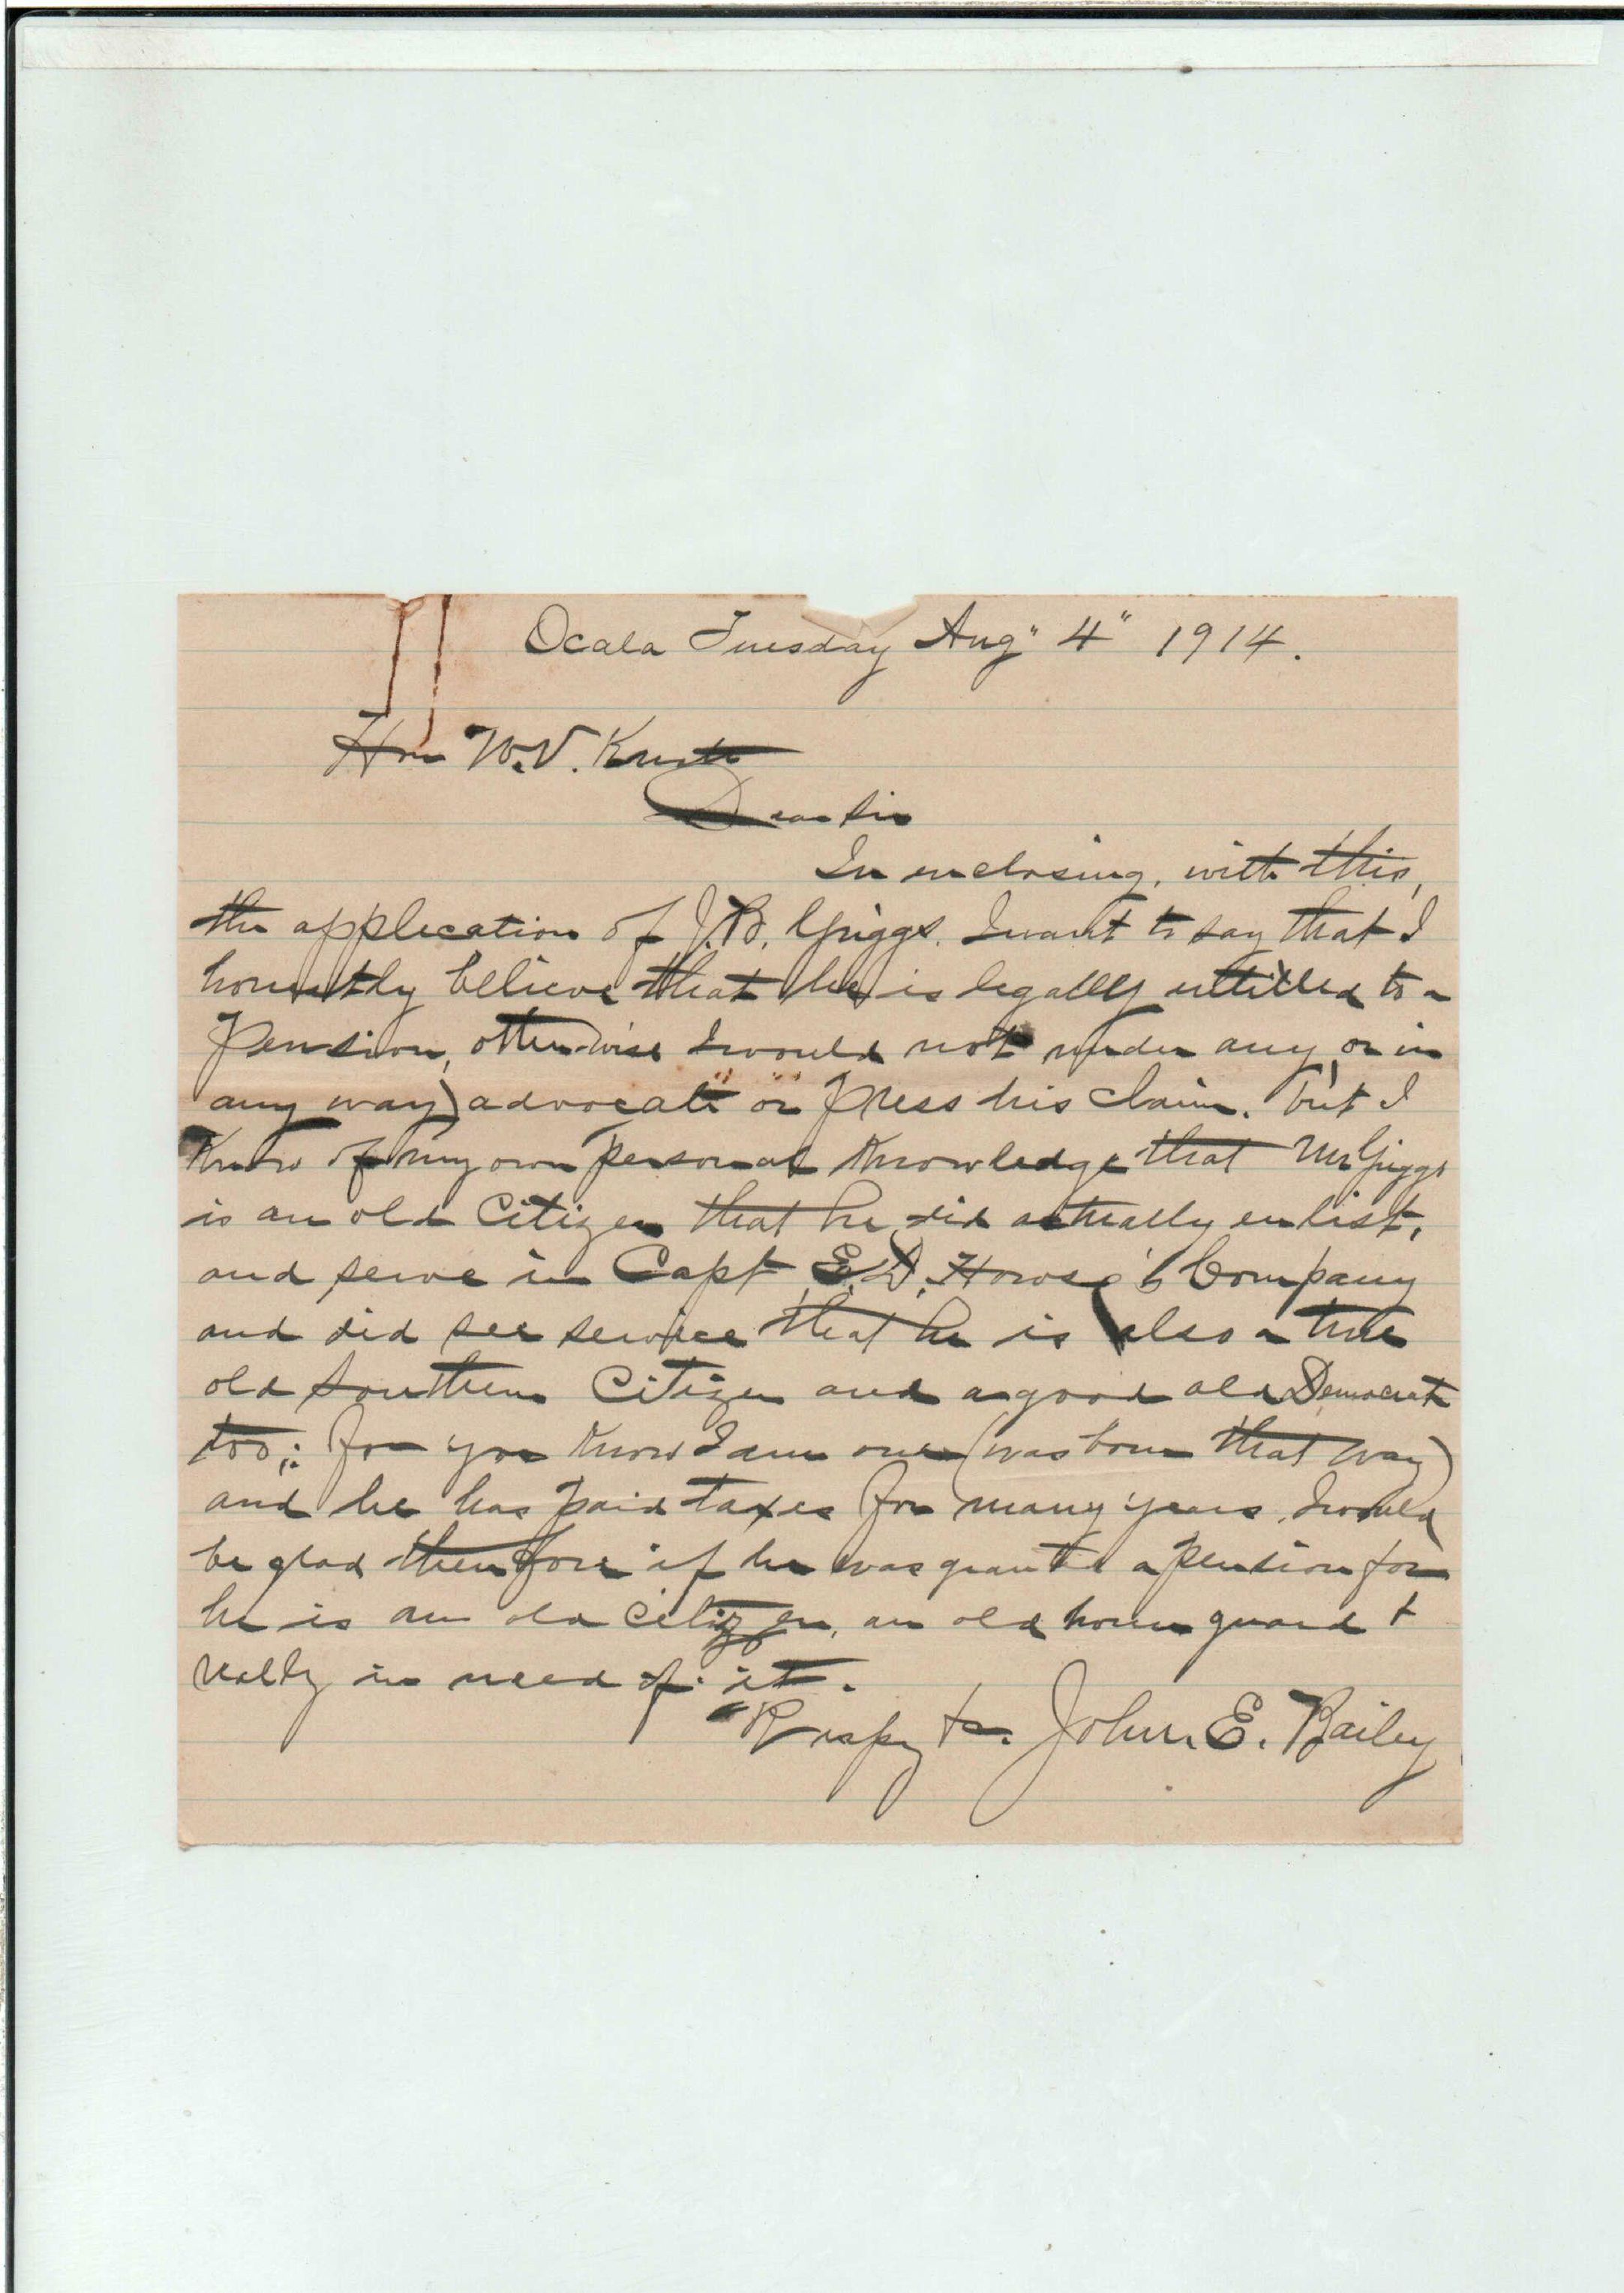 Ocala Tuesday Aug" 4" 1914.
Hon W.V. Knott
Dear Sir
In enclosing, with this,
the application of J.B. Griggs. I want to say that I
honestly believe that he is legally entitled to a
Pension, otherwise I would not under any, or in
any way) advocate or press his claim. but I
Know of my own personal Knowledge that Mr Griggs
is an old Citizen that he did actually enlist,
and serve in Capt E.D. Howse's Company
and did see service that he is also a true
old Southern Citizen and a good old Democrat
too; for you Know I am one (was born that way)
and he has paid taxes for many years. I would
be glad therefore if he was grante a pension for
he is an old Citizen, an old home guard +
really in need of it.
Respy to. John. E. Bailey